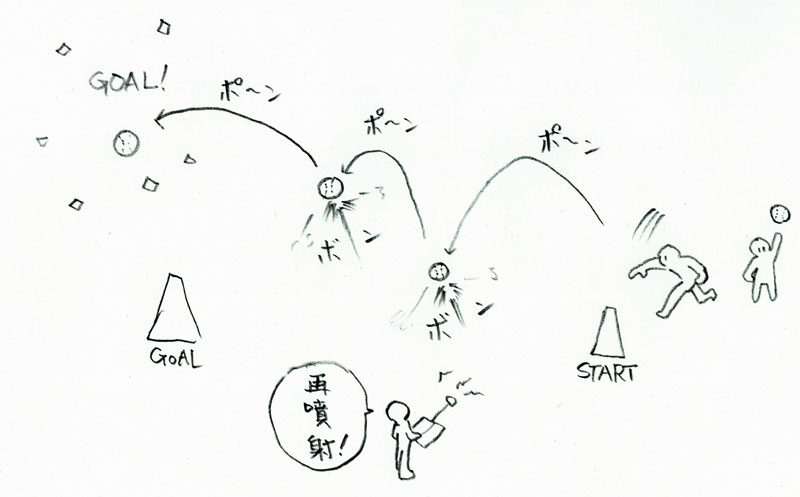 GOAL!
ポ〜ン
ポ〜ン
ポ〜ン
ボン
ボン
GOAL
START
再
噴
射!